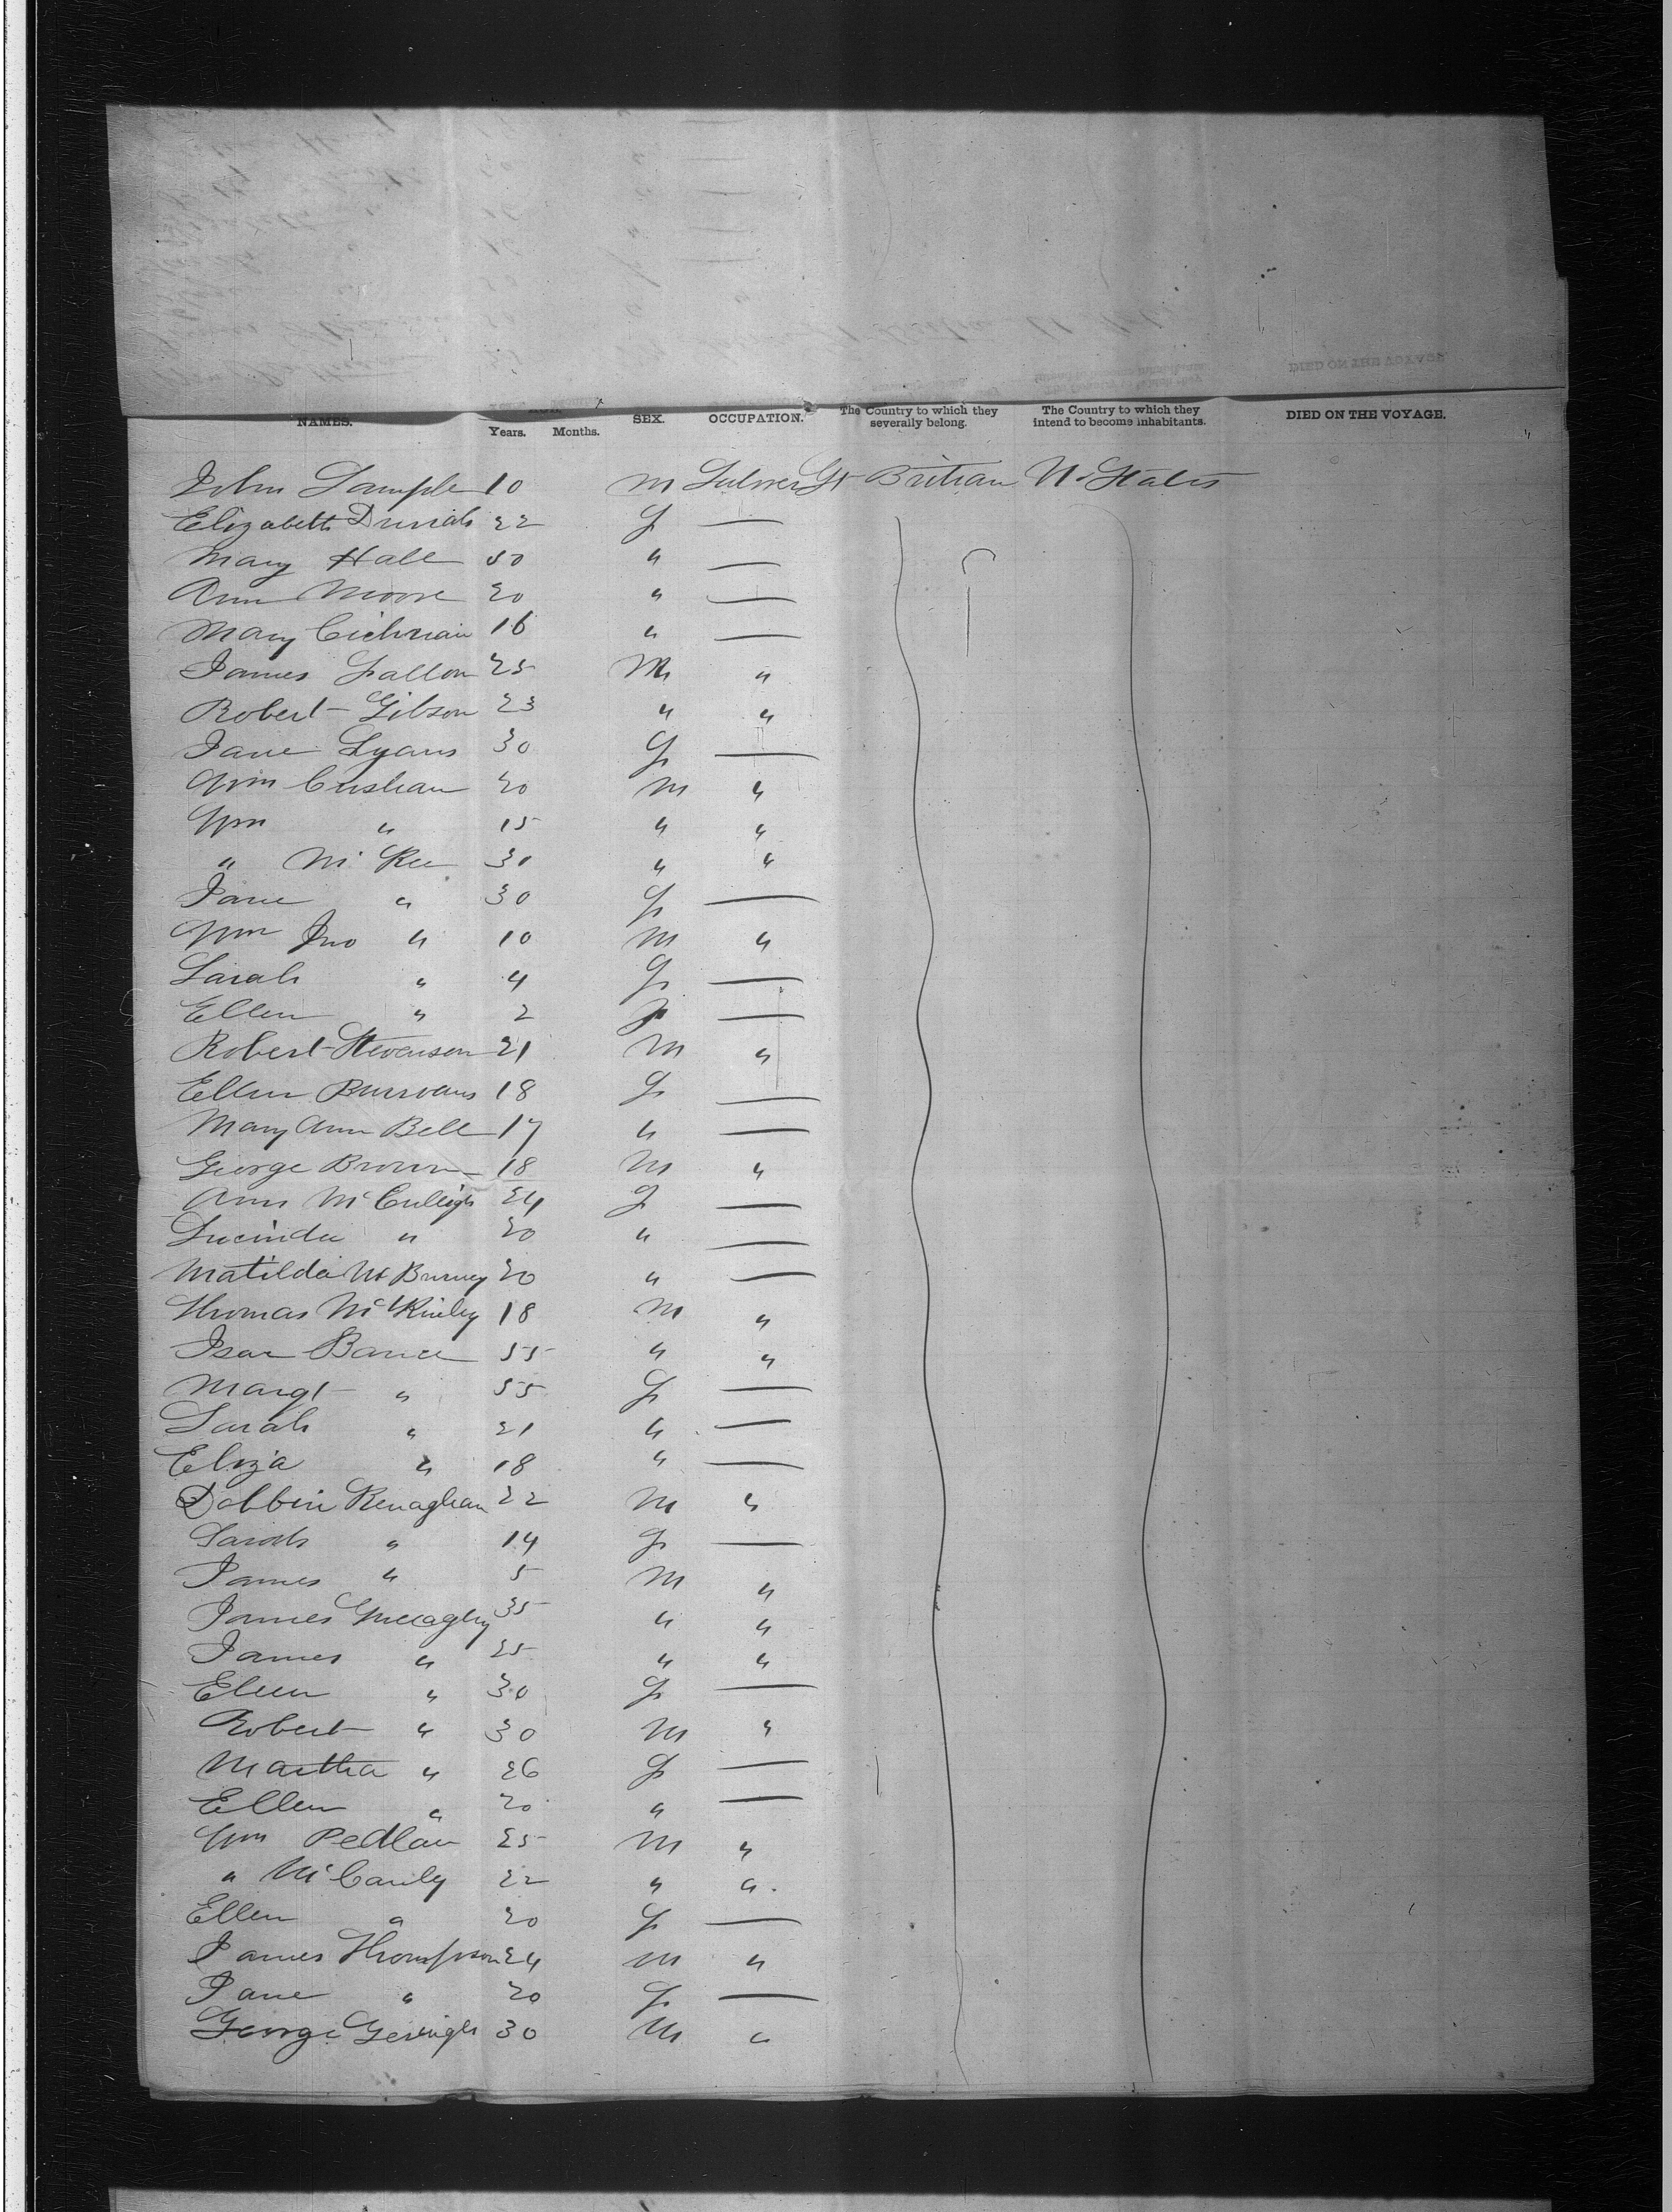 NAMES. Years. Months. SEX. OCCUPATION. The Country to which they severally belong. The Country to which they intend to become inhabitants. DIED ON THE VOYAGE.
John Sample 10 m Gt Britian U. States
Elizabeth 22 f —
Mary Hall 50 " —
Ann Moore 20 " —
Mary 16 " —
James Fallon 25 M "
Robert Gibson 23 " "
Jane Lyans 30 f —
Wm 20 m "
Wm " 15 " "
" McKee 30 " "
Jane " 30 f —
Wm Jno " 10 m "
Sarah " 4 f —
Ellen " 2 f —
Robert Stevenson 21 m "
Ellen 18 f —
Mary Ann Bell 17 " —
George Brown 18 m "
Ann 24 f —
Lucinda " 20 " —
Matilda McBurney 20 " —
Thomas McKinley 18 m "
55 " "
Margt " 55 f —
Sarah " 21 " —
Eliza " 18 " —
Dobbin Renaghan 22 m "
Sarah " 14 f —
James " 5 m "
James 35 " "
James " 25 " "
Ellen " 30 f —
Robert " 30 m "
Martha " 26 f —
Ellen " 20 " —
Wm Pedlow 25 m "
" 22 " "
Ellen " 20 f —
James Thompson 24 m "
Jane " 20 f —
George 30 m "